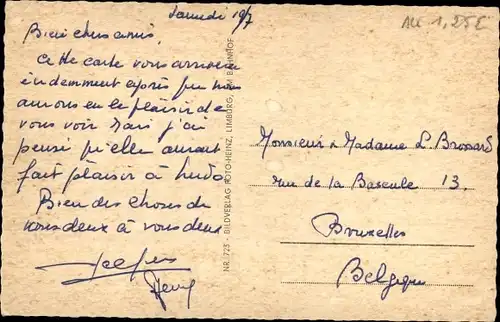 Samedi 19/7
Bien chers amis,
Cette carte vous arrivera
évidemment après que nous
aurons eu le plaisir de
vous voir mais j'ai
pensé qu'elle aurait
fait plaisir à
Bien des choses de
nous deux à vous deux
NR. 723 - BILDVERLAG FOTO-HEINZ, LIMBURG, AM BAHNHOF
1,25€
Monsieur & Madame L. Brossard
rue de la Bascule 13.
Bruxelles
Belgique